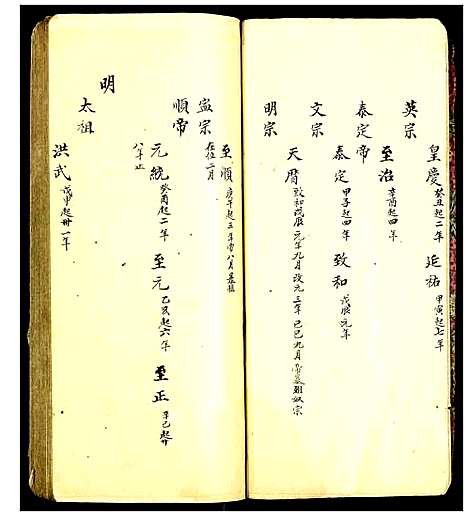 皇慶 癸丑起二年 延祐 甲寅起七年
英宗
至治 辛酉起四年
泰定帝
泰定 甲子起四年 致和 戊辰元年
文宗
天曆 致和戊辰元年九月改元三年己巳九月帝
明宗
至順 庚午起三年 八月
寧宗
在位二月
順帝
元統 癸酉起二年 至元 乙亥起六年 至正 辛巳起廿
八年止
明
太祖
洪武 戊申起卅一年